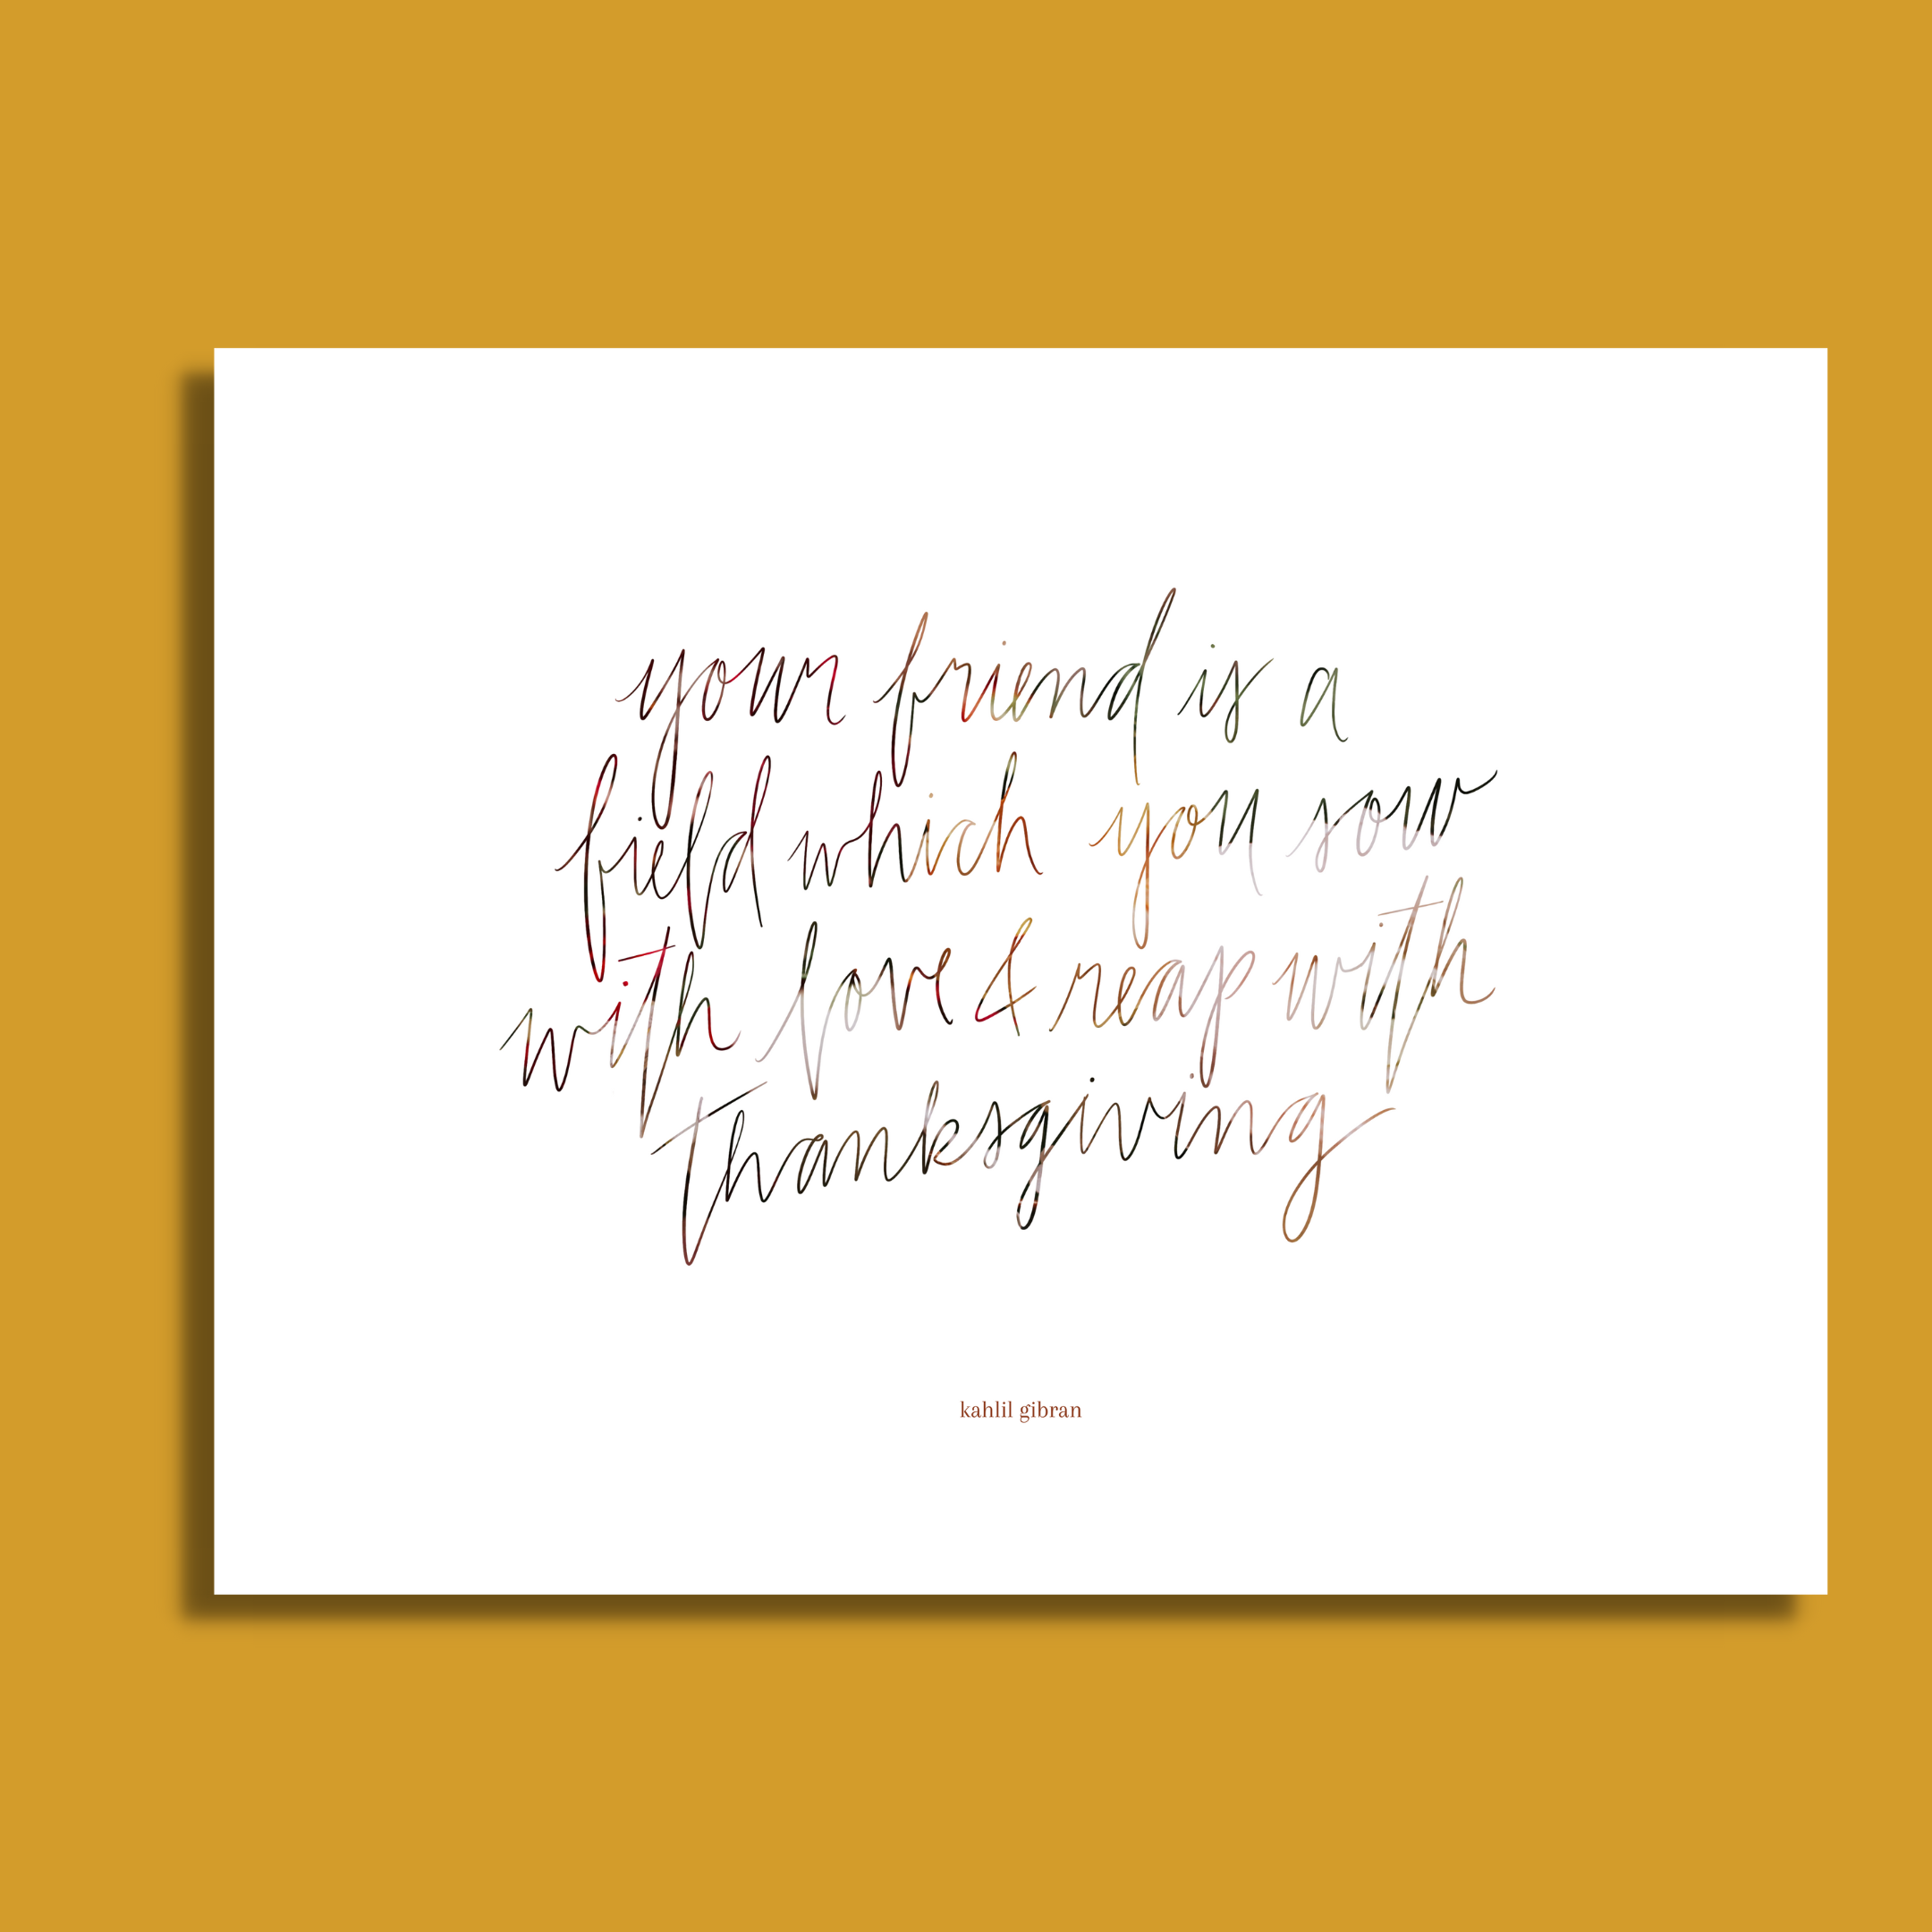 your friend is a
field which you sow
with love & reap with
thanksgiving
kahlil gibran